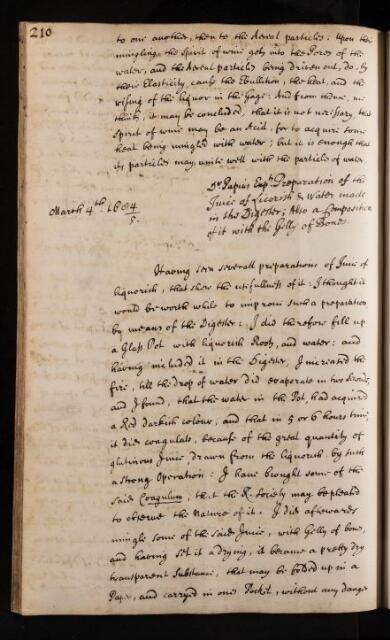 210
to one another, then to the Aerial particles: Upon the
mingling the Spirit of wine gets into the Pores of the
water, and the Aerial particles being driven out, do, by
their Elasticity, cause the Ebullition, the heat, and the
rising of the liquor in the Gage: And from thence, me
thinks, it may be concluded, that it is not necessary that
Spirit of wine may be an Acid, for to acquire some
heat being mingled with water; but it is enough that
its particles may unite well with the particles of water.
Dr Papins Expt Preparation of the
Juice of Licorish & Water made
in the Digester; Also a Composition
of it with the Gelly of Bones.
March 4th 1684/5.
Having seen severall preparations of Juice of
liquorish, that shew the usefullness of it: I thought it
would be worth while to improve such a preparation
by means of the Digester: I did therefore fill up
a Glass Pot with liquorish Roots, and water: and
having included it in the Digester, I increased the
fire, till the drop of water did evaporate in two seconds,
and I found, that the water in the Pot, had acquired
a Red darkish colour, and that in 5 or 6 hours time,
it did coagulate, because of the great quantity of
glutinous Juice, drawn from the liquorish by such
a strong operation: I have brought some of the
said Coagulum, that the R. Society may be pleas'd
to observe the Nature of it. I did afterwards
mingle some of the said Juice, with Gelly of bone,
and having set it a drying, it became a pretty dry
transparent Substance, that may be folded up in a
Paper, and carryed in ones Pocket, without any danger